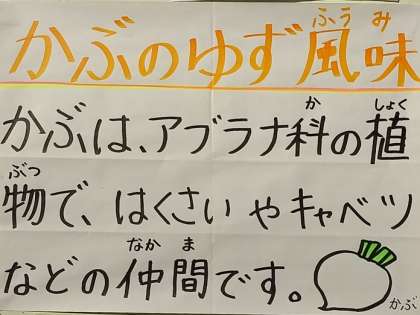 ふうみ
かぶのゆず風味
か しょく
かぶは、アブラナ科の植
ぶつ
物で、はくさいやキャベツ
なかま
などの仲間です。
かぶ